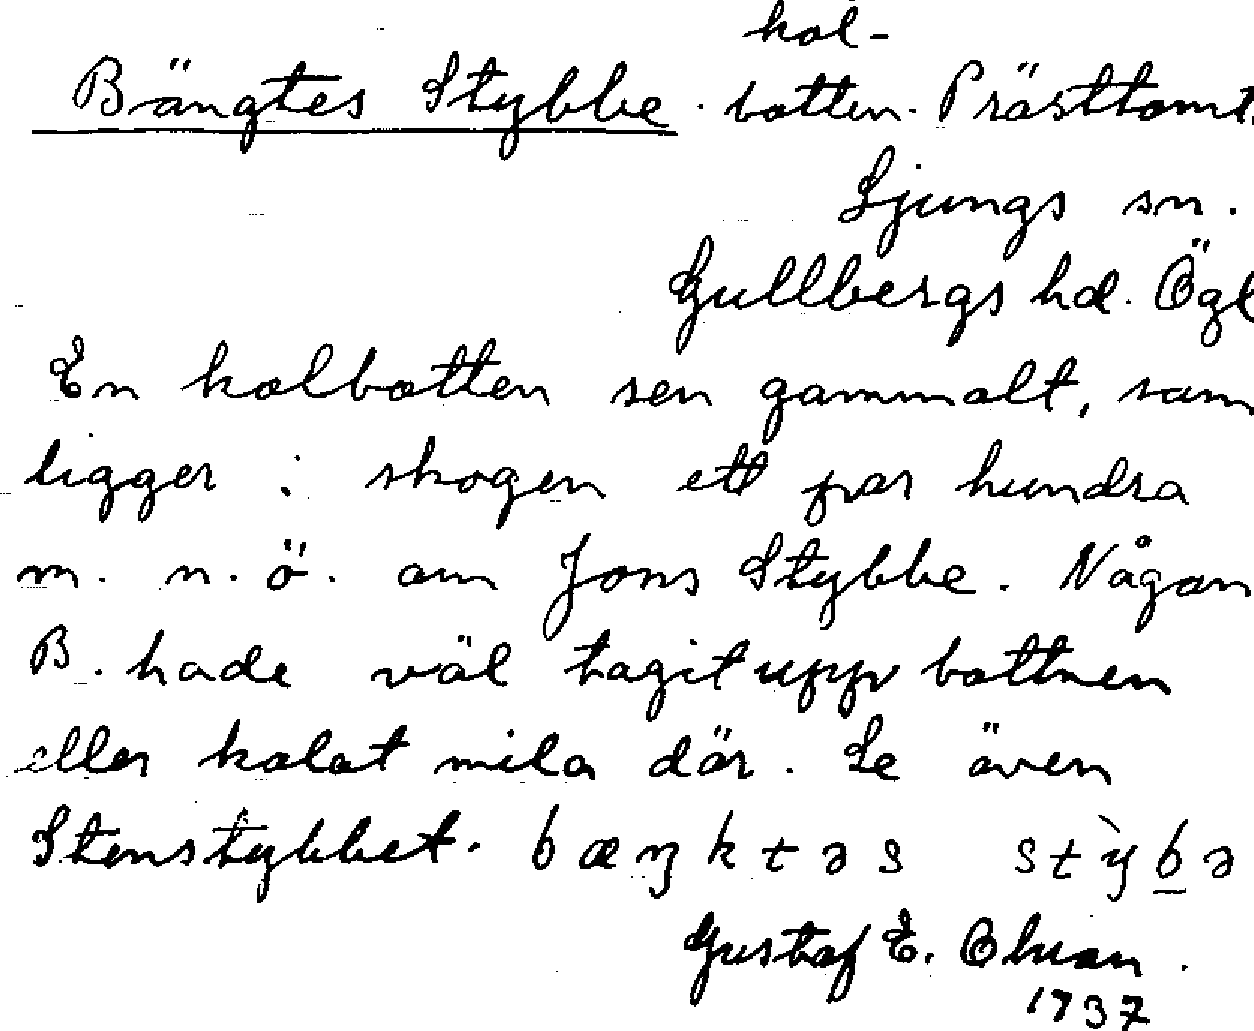 kol-
Bängtes Stybbe. botten. Prästtomt.
Ljungs sn.
Gullbergs hd. Ögl
En kolbotten sen gammalt, som
ligger i skogen ett par hundra
m. n. ö. om Jons Stybbe. Någon
B. hade väl tagit upp bottnen
eller kolat mila där. Se även
Stenstybbet. bæŋktəs stỳbə
Gustaf E. Ohman.
1737